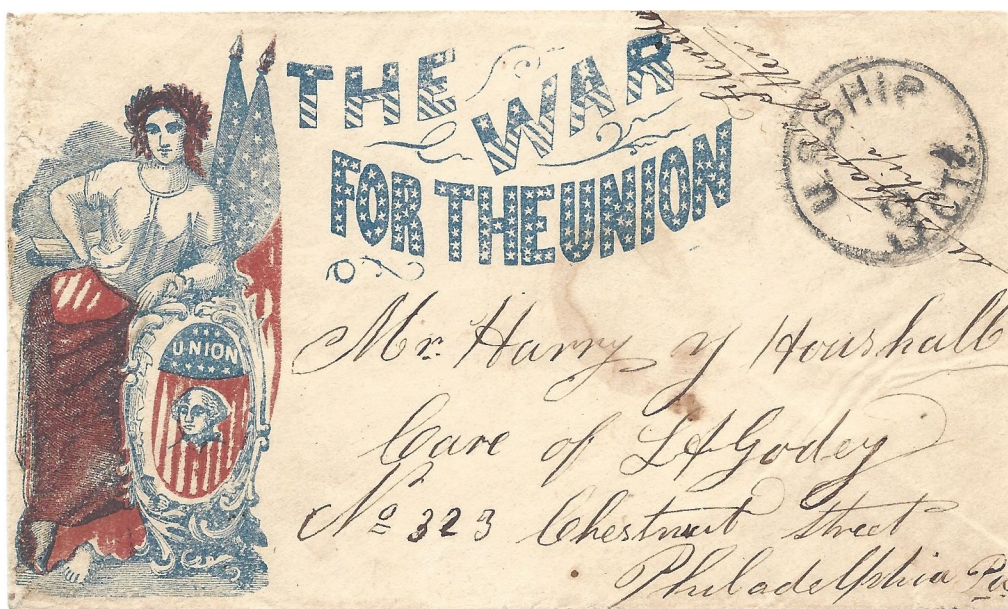 THE WAR
FOR THE UNION
U.S. SHIP
UNION
Mr. Harry Y Houshall
Care of L A Godey
No 323 Chestnut Street
Philadelphia Pa